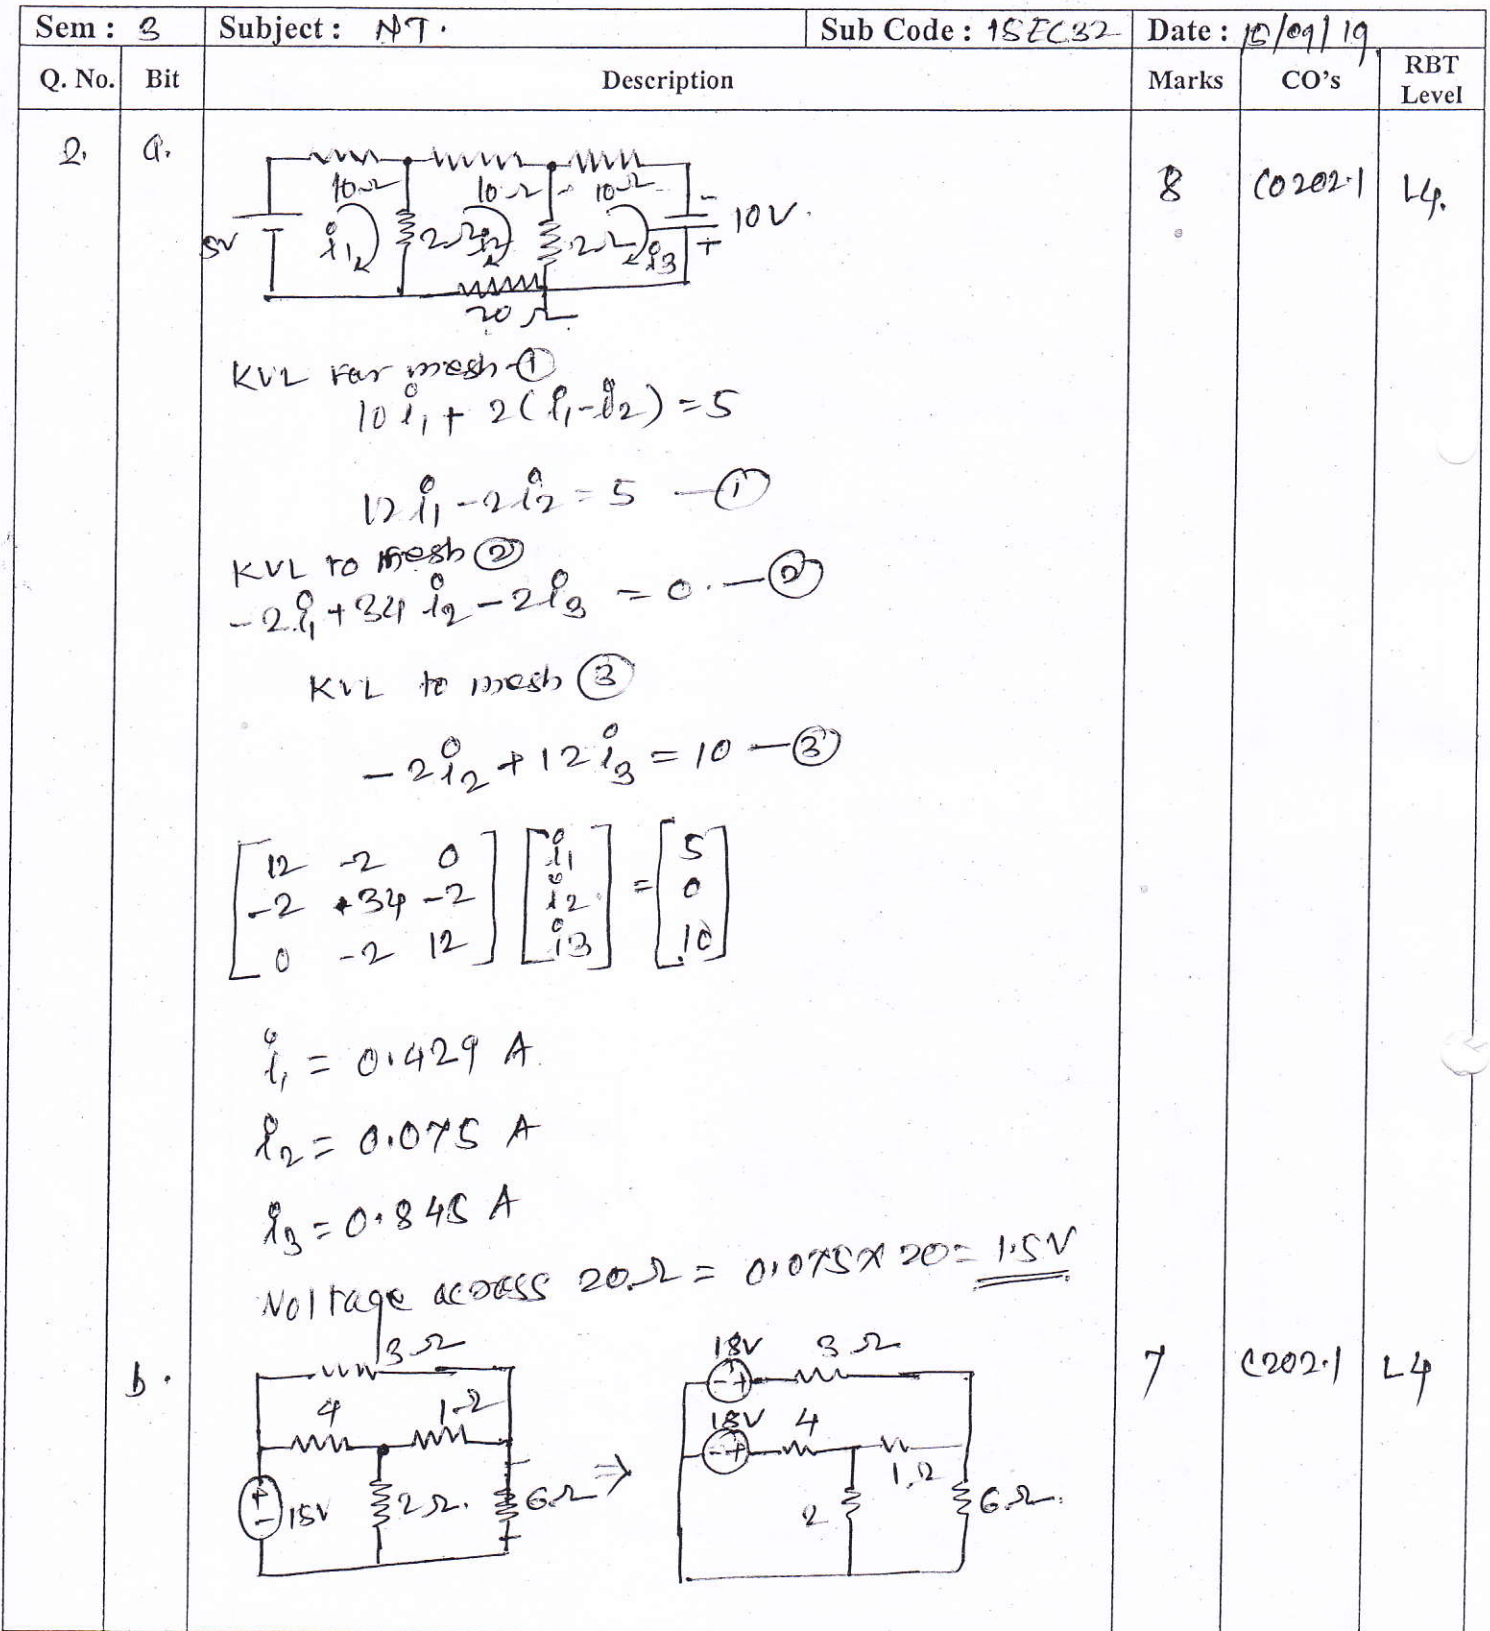 Sem : 3 Subject : NT. Sub Code : 15EC32 Date : 15/09/19
Q. No. Bit Description Marks CO's RBT Level
2. a. 8 CO202.1 L4.
10Ω 10Ω 10Ω
5V i1 2Ω i2 2Ω i3 - + 10V.
20Ω
KVL For mesh-①
10i1 + 2(i1-i2) = 5
12i1 - 2i2 = 5 —①
KVL to mesh ②
-2i1 + 34i2 - 2i3 = 0. —②
KVL to mesh ③
-2i2 + 12i3 = 10 —③
[12 -2 0] [i1] = [5]
[-2 +34 -2] [i2] [0]
[0 -2 12] [i3] [10]
i1 = 0.429 A.
i2 = 0.075 A
i3 = 0.845 A
Voltage across 20Ω = 0.075 x 20 = 1.5V
b. 7 C202.1 L4
3Ω 18V 3Ω
4 1Ω 18V 4
+ - 18V 2Ω. 6Ω ⇒ 2 1Ω 6Ω.